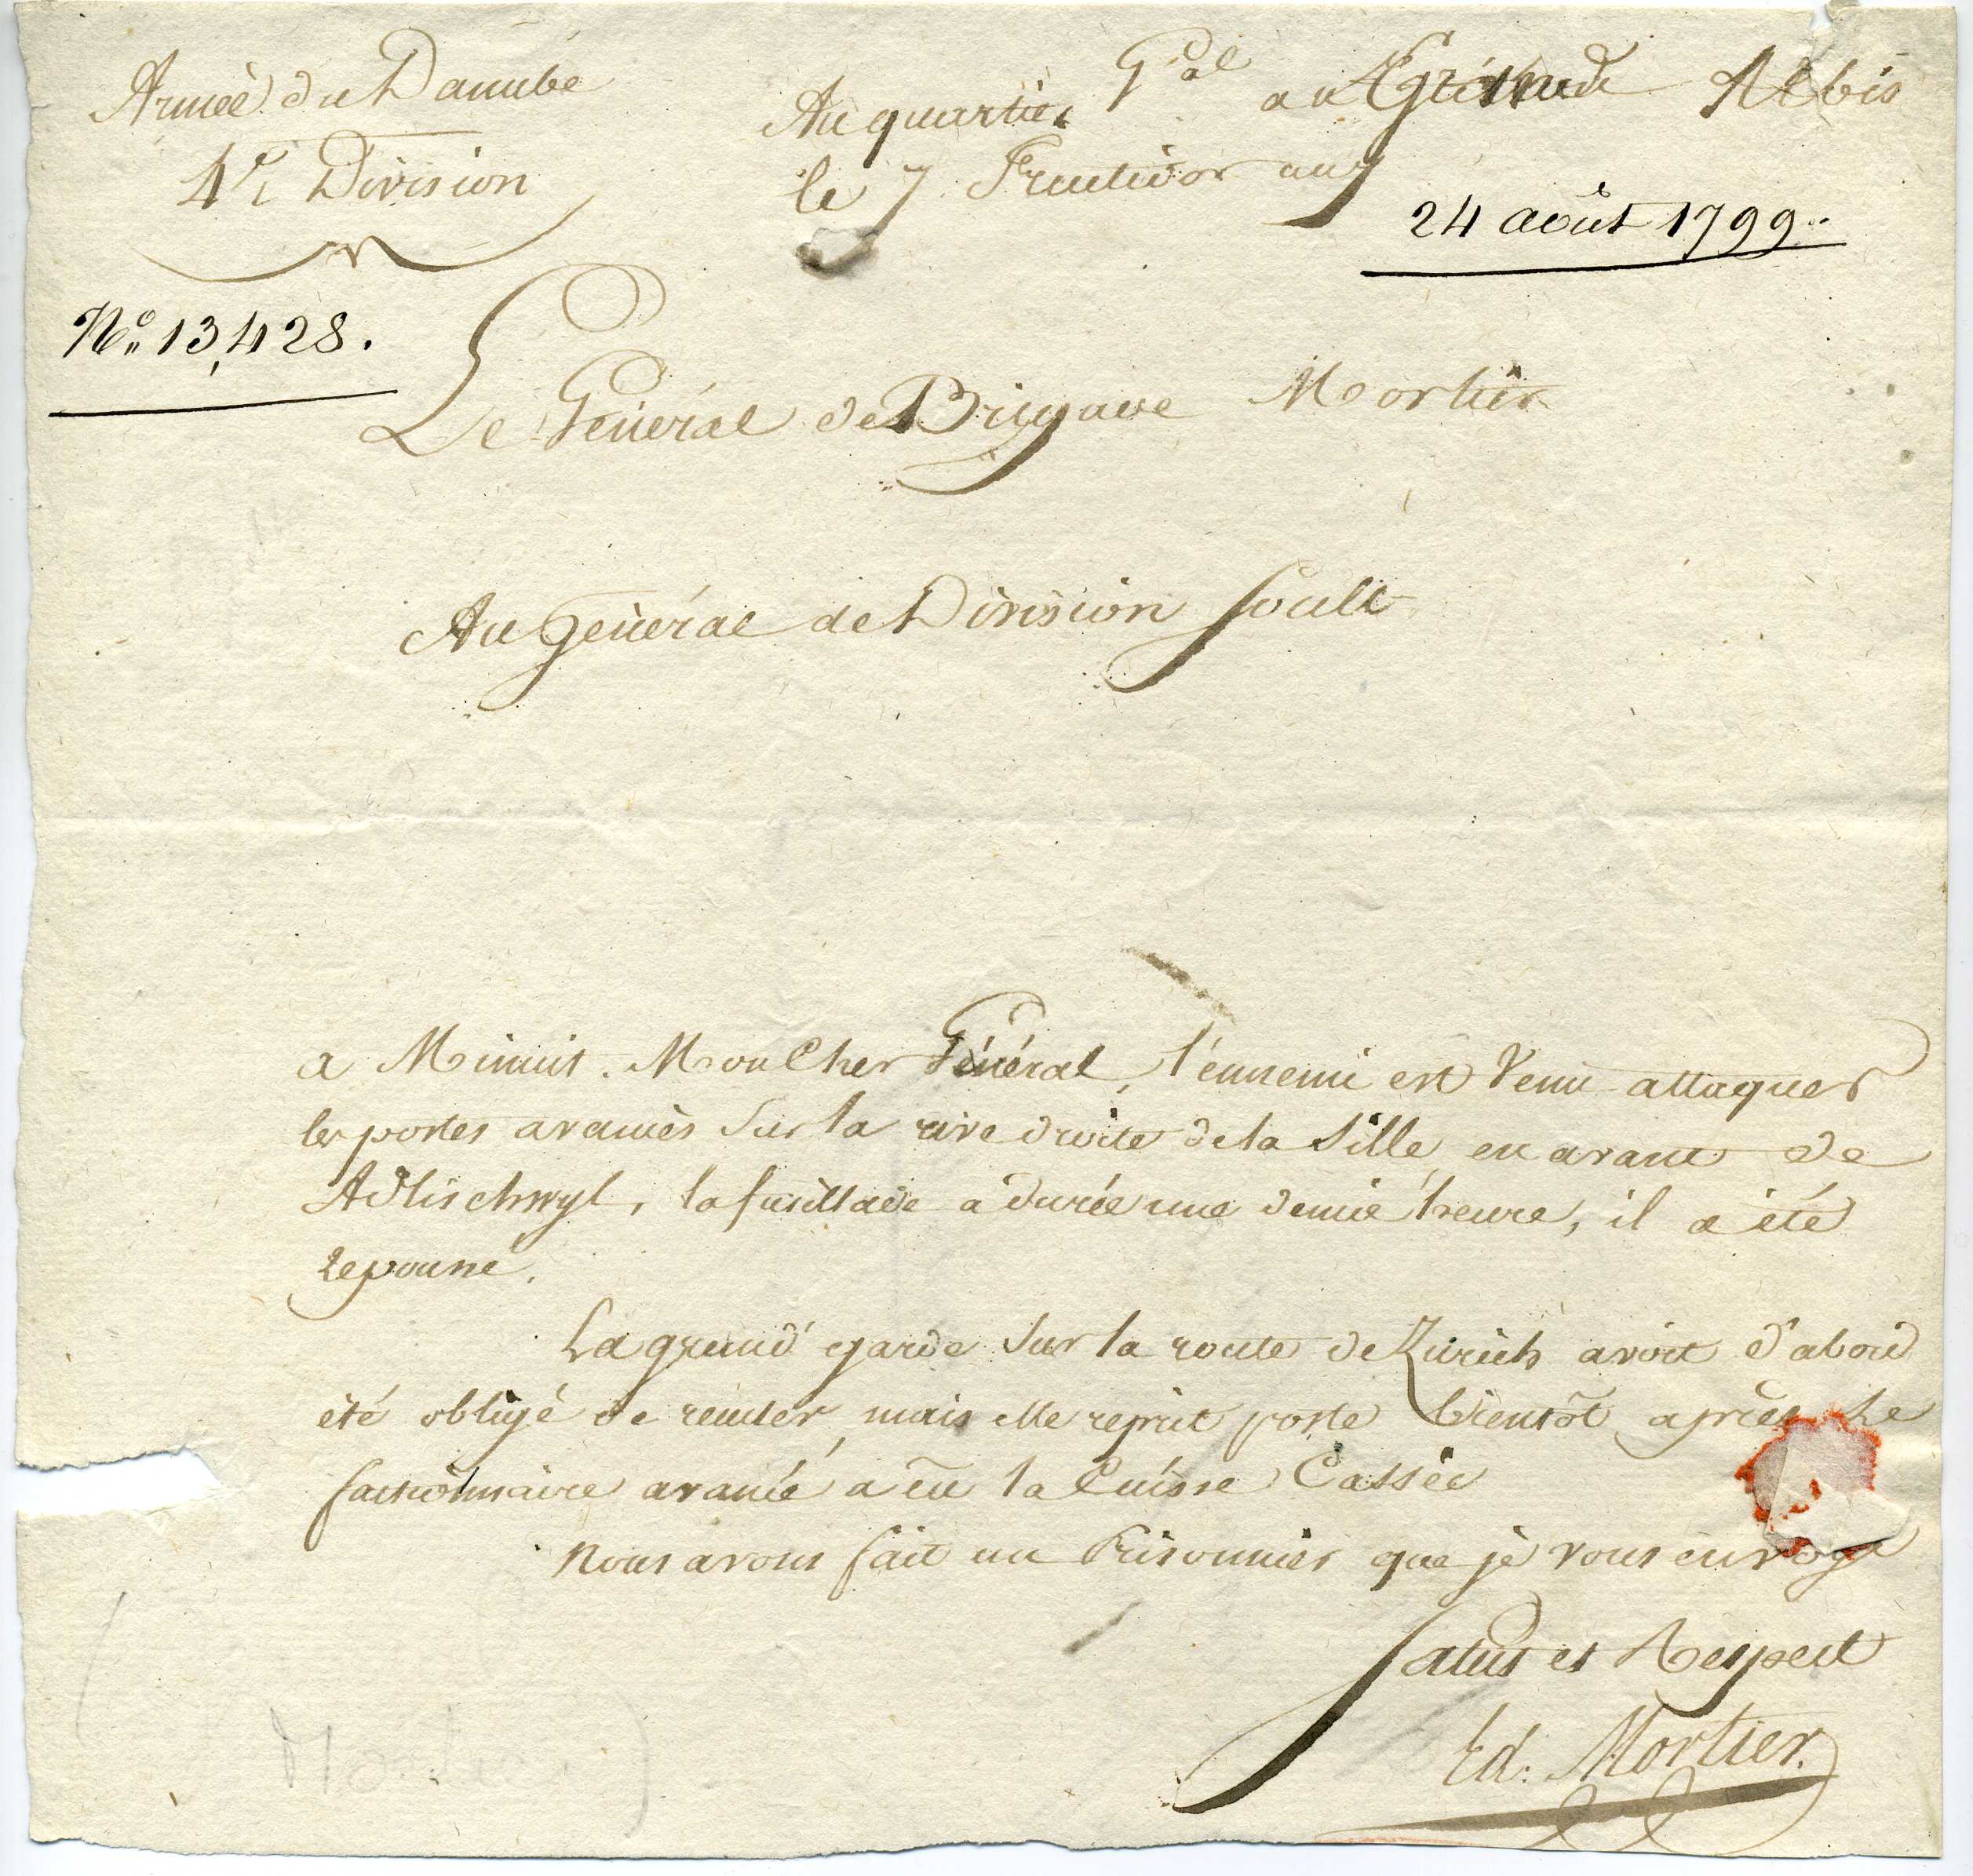 Armée du Danube
4e Division
Au quartier Gal au Albis
le 7 Fructidor an 7
24 août 1799.
No. 13,428.
Le Général de Brigade Mortier
Au Général de Division Soult
a Minuit. Mon Cher Général, l'ennemi est Venu attaquer
les postes avancés sur la rive droite de la Sille en avant de
Adlischwyl, la fusillade a durée une demie heure, il a été
repoussé.
La grand'garde sur la route de Zurich avoit d'abord
été obligé de reculer, mais elle reprit poste bientôt après Le
factionnaire avancé a eu la Cuisse Cassée
Nous avons fait un Prisonnier que je vous envoye
Salut et Respect
Ed. Mortier.